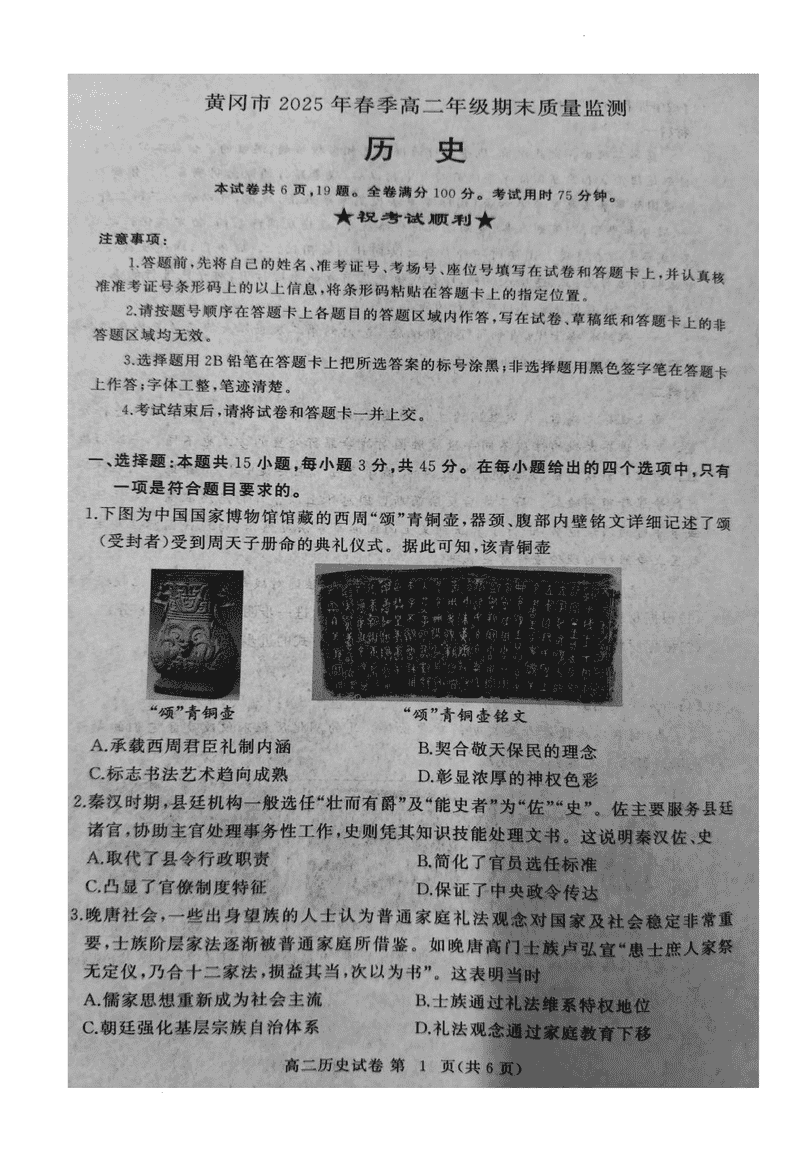 黄冈市 2025 年春季高二年级期末质量监测
历 史
本试卷共 6 页,19 题。全卷满分 100 分。考试用时 75 分钟。
★祝考试顺利★
注意事项:
1.答题前,先将自己的姓名、准考证号、考场号、座位号填写在试卷和答题卡上,并认真核
准准考证号条形码上的以上信息,将条形码粘贴在答题卡上的指定位置。
2.请按题号顺序在答题卡上各题目的答题区域内作答,写在试卷、草稿纸和答题卡上的非
答题区域均无效。
3.选择题用 2B 铅笔在答题卡上把所选答案的标号涂黑;非选择题用黑色签字笔在答题卡
上作答;字体工整,笔迹清楚。
4.考试结束后,请将试卷和答题卡一并上交。
一、选择题:本题共 15 小题,每小题 3 分,共 45 分。在每小题给出的四个选项中,只有
一项是符合题目要求的。
1.下图为中国国家博物馆馆藏的西周“颂”青铜壶,器颈、腹部内壁铭文详细记述了颂
(受封者)受到周天子册命的典礼仪式。据此可知,该青铜壶
“颂”青铜壶 “颂”青铜壶铭文
A.承载西周君臣礼制内涵 B.契合敬天保民的理念
C.标志书法艺术趋向成熟 D.彰显浓厚的神权色彩
2.秦汉时期,县廷机构一般选任“壮而有爵”及“能史者”为“佐”“史”。佐主要服务县廷
诸官,协助主官处理事务性工作,史则凭其知识技能处理文书。这说明秦汉佐、史
A.取代了县令行政职责 B.简化了官员选任标准
C.凸显了官僚制度特征 D.保证了中央政令传达
3.晚唐社会,一些出身望族的人士认为普通家庭礼法观念对国家及社会稳定非常重
要,士族阶层家法逐渐被普通家庭所借鉴。如晚唐高门士族卢弘宣“患士庶人家祭
无定仪,乃合十二家法,损益其当,次以为书”。这表明当时
A.儒家思想重新成为社会主流 B.士族通过礼法维系特权地位
C.朝廷强化基层宗族自治体系 D.礼法观念通过家庭教育下移
高二历史试卷 第 1 页(共 6 页)